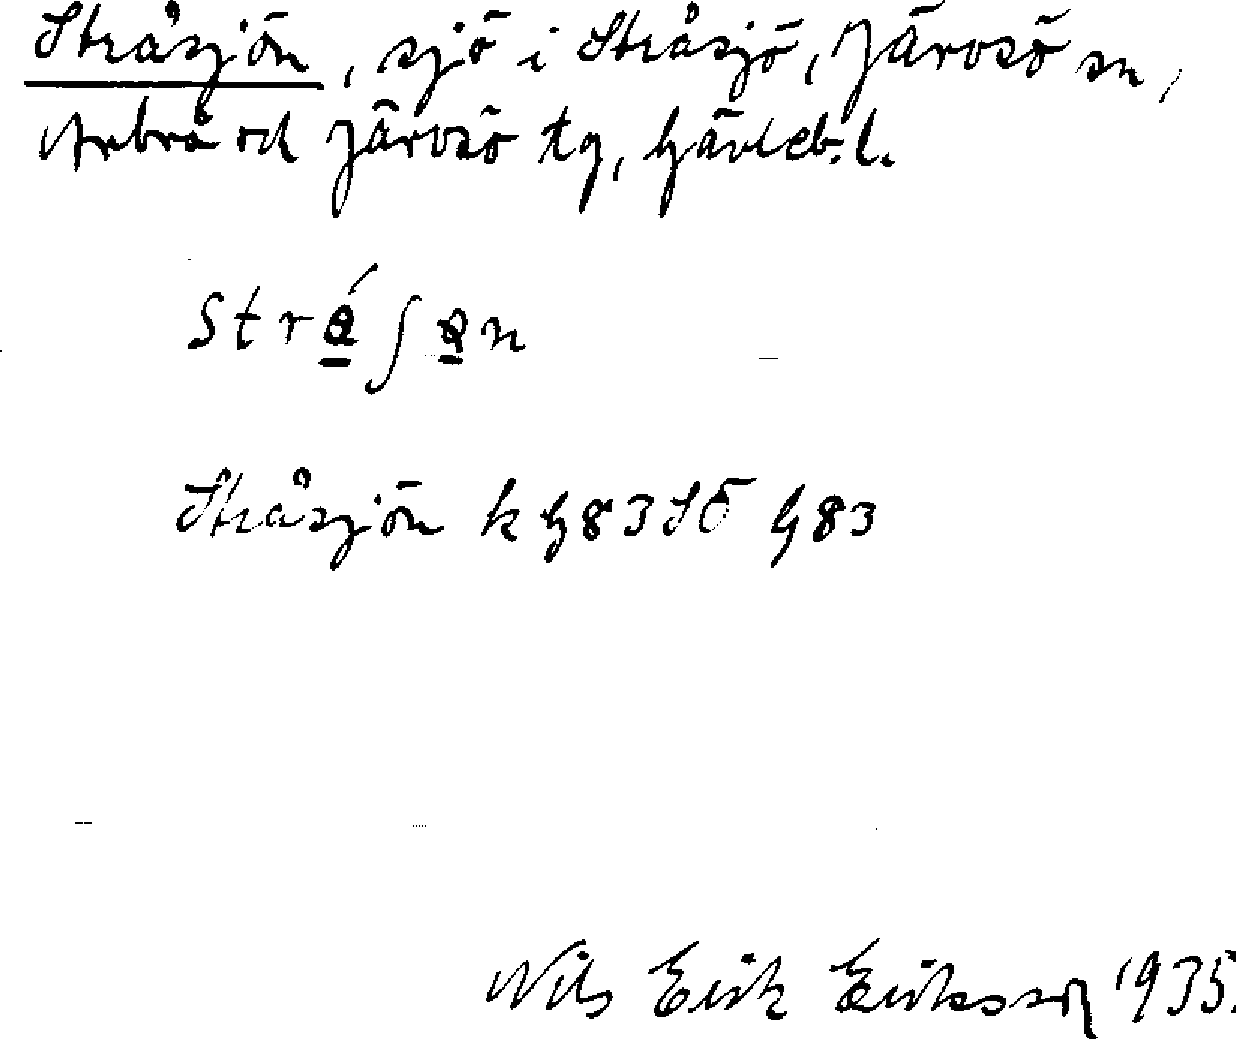 Stråsjön, sjö i Stråsjö, Järvsö sn,
Arbrå och Järvsö tg, Gävleb. l.
Stråsjön k G83SÖ G83
Nils Erik Eriksson 1935.